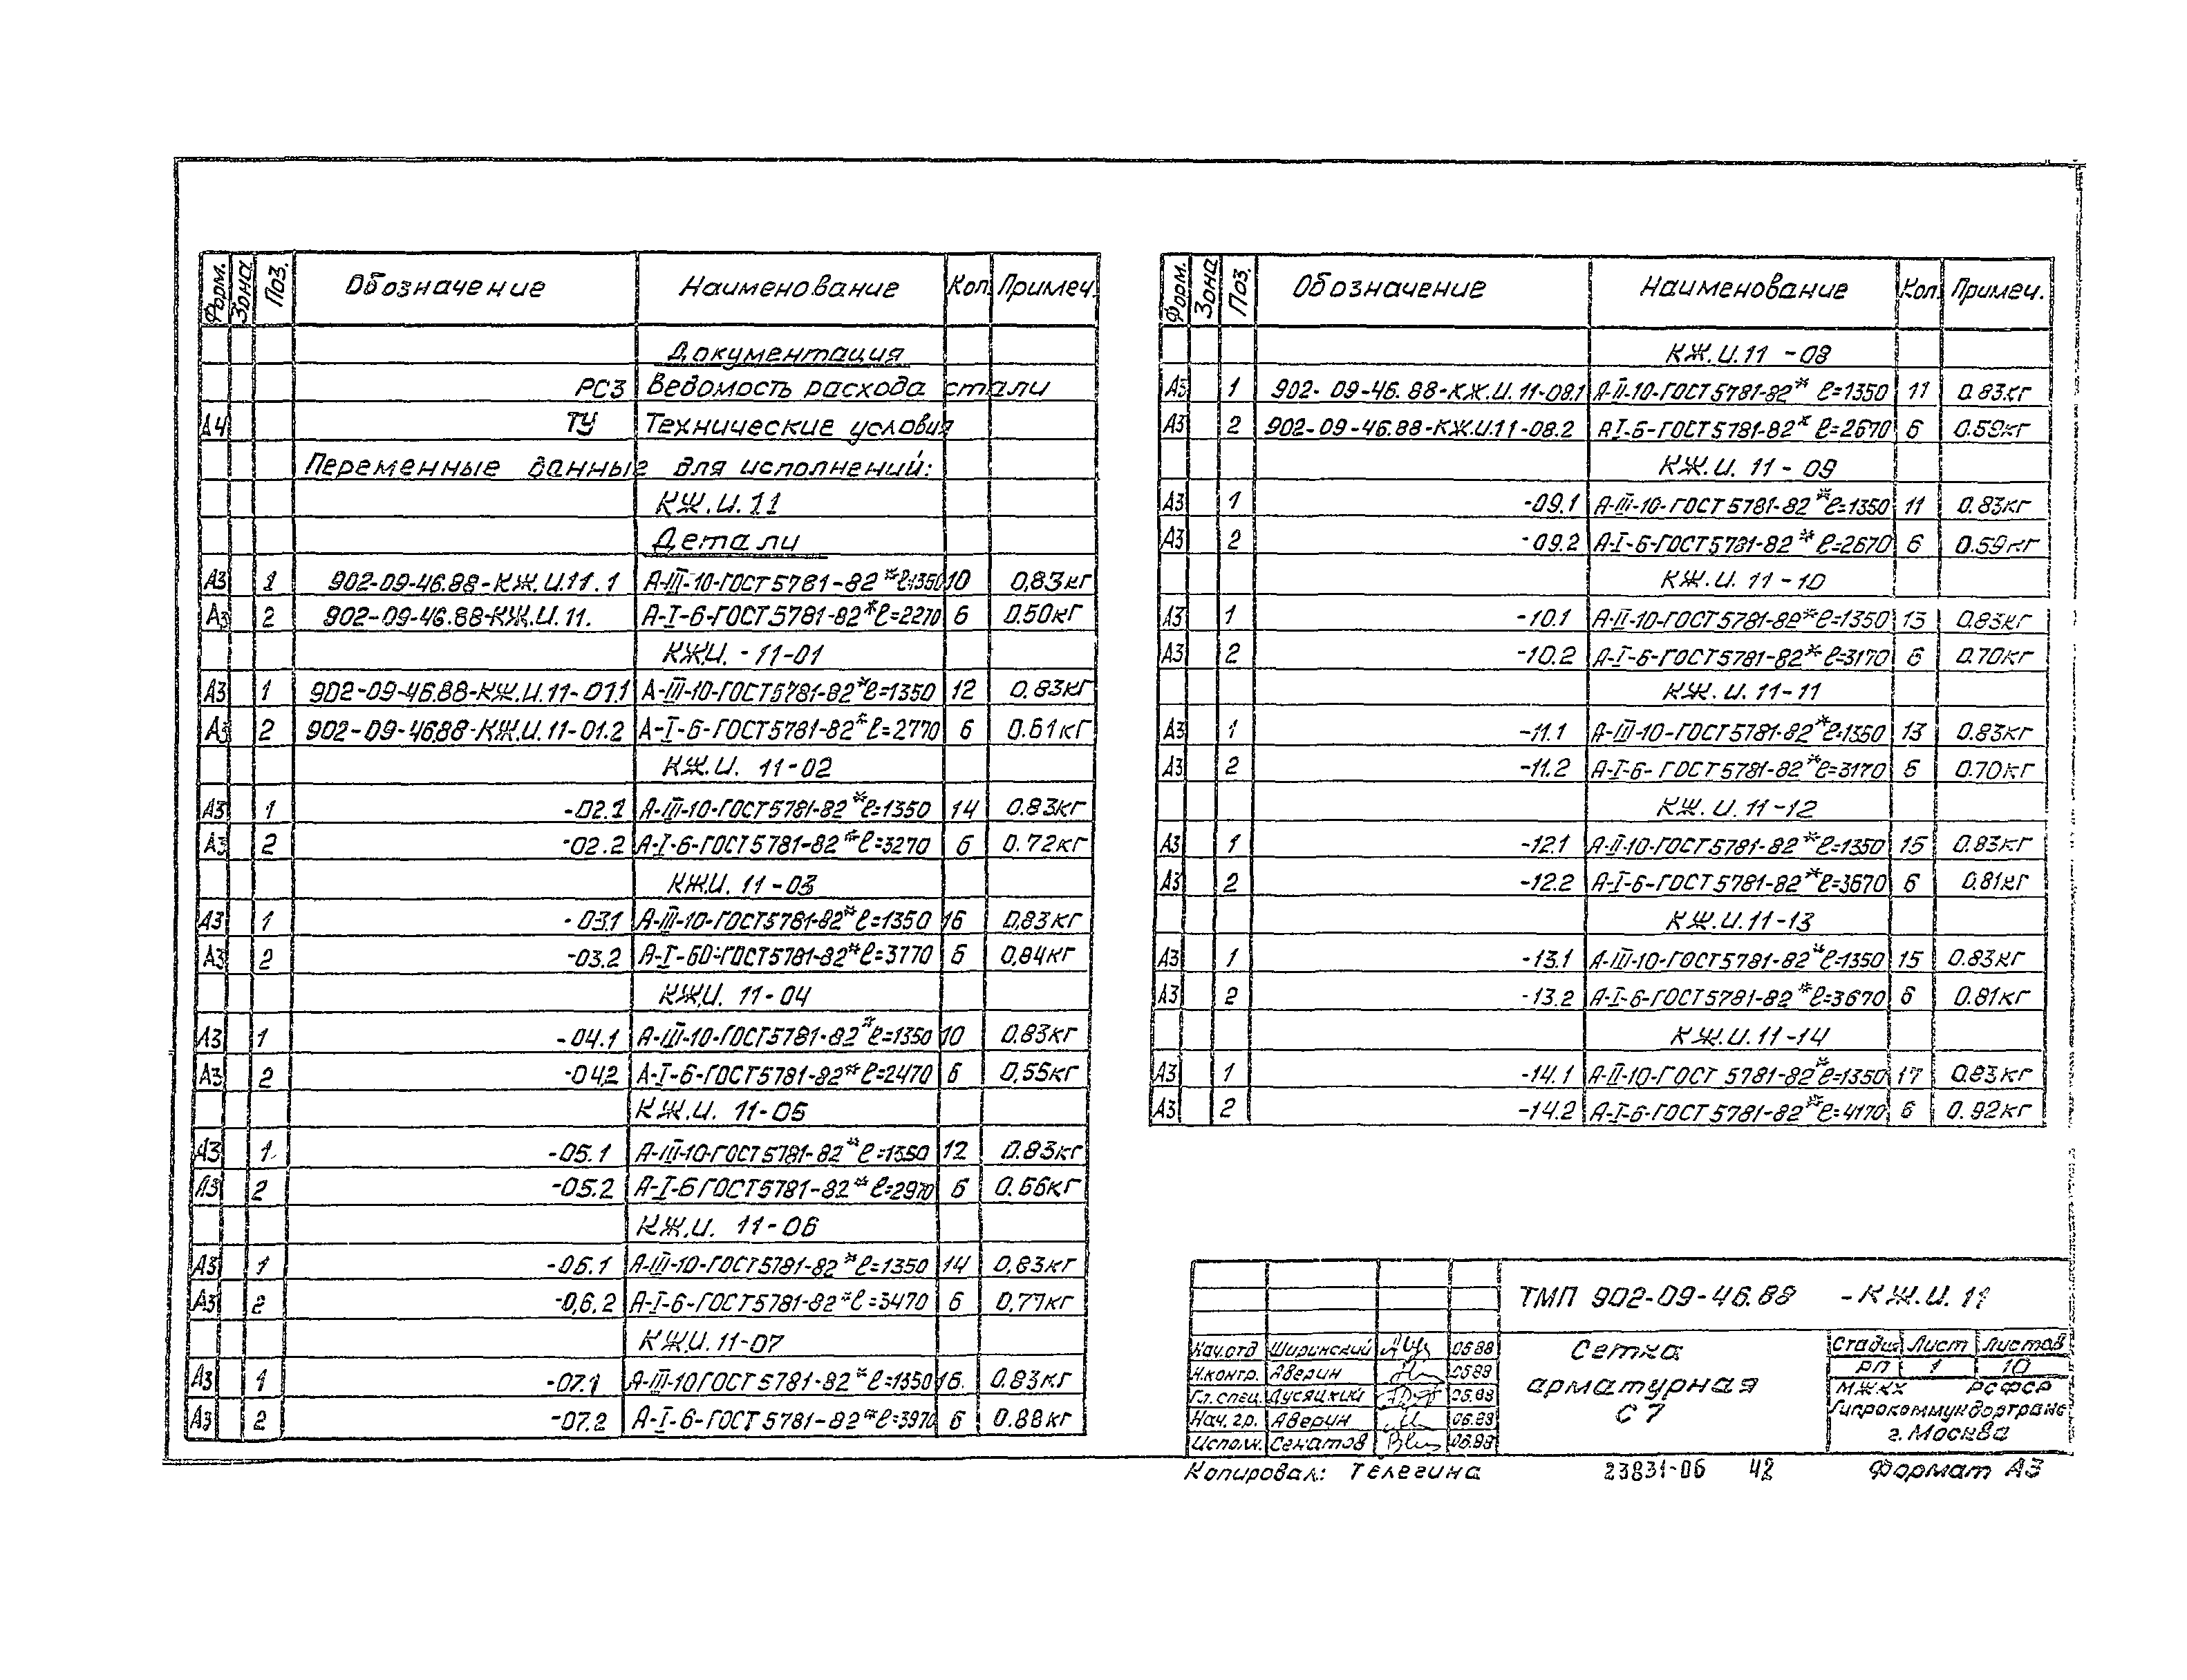 Форм. Зона Поз. Обозначение Наименование Кол. Примеч.
Документация
РС3 Ведомость расхода стали
А4 ТУ Технические условия
Переменные данные для исполнений:
КЖ.И.11
Детали
А3 1 902-09-46.88-КЖ.И.11.1 А-III-10-ГОСТ 5781-82* ℓ=1350 10 0,83кг
А3 2 902-09-46.88-КЖ.И.11. А-I-6-ГОСТ 5781-82* ℓ=2270 6 0.50кг
КЖИ. -11-01
А3 1 902-09-46.88-КЖ.И.11-01.1 А-III-10-ГОСТ 5781-82* ℓ=1350 12 0.83кг
А3 2 902-09-46.88-КЖ.И.11-01.2 А-I-6-ГОСТ 5781-82* ℓ=2770 6 0.61кг
КЖ.И. 11-02
А3 1 -02.1 А-III-10-ГОСТ 5781-82* ℓ=1350 14 0.83кг
А3 2 -02.2 А-I-6-ГОСТ 5781-82* ℓ=3270 6 0.72кг
КЖИ. 11-03
А3 1 -03.1 А-III-10-ГОСТ 5781-82* ℓ=1350 16 0,83кг
А3 2 -03.2 А-I-6D-ГОСТ 5781-82* ℓ=3770 6 0,84кг
КЖИ. 11-04
А3 1 -04.1 А-III-10-ГОСТ 5781-82* ℓ=1350 10 0.83кг
А3 2 -04.2 А-I-6-ГОСТ 5781-82* ℓ=2470 6 0,55кг
КЖ.И. 11-05
А3 1 -05.1 А-III-10-ГОСТ 5781-82* ℓ=1350 12 0.83кг
А3 2 -05.2 А-I-6 ГОСТ 5781-82* ℓ=2970 6 0.66кг
КЖ.И. 11-06
А3 1 -06.1 А-III-10-ГОСТ 5781-82* ℓ=1350 14 0,83кг
А3 2 -0,6.2 А-I-6-ГОСТ 5781-82* ℓ=3470 6 0,77кг
КЖИ. 11-07
А3 1 -07.1 А-III-10 ГОСТ 5781-82* ℓ=1350 16. 0.83кг
А3 2 -07.2 А-I-6-ГОСТ 5781-82* ℓ=3970 6 0.88кг
Форм. Зона Поз. Обозначение Наименование Кол. Примеч.
КЖ.И.11 -08
А3 1 902-09-46.88-КЖ.И.11-08.1 А-II-10-ГОСТ 5781-82* ℓ=1350 11 0.83кг
А3 2 902-09-46.88-КЖ.И.11-08.2 А I-6-ГОСТ 5781-82* ℓ=2670 6 0.59кг
КЖ.И. 11-09
А3 1 -09.1 А-III-10-ГОСТ 5781-82* ℓ=1350 11 0.83кг
А3 2 -09.2 А-I-6-ГОСТ 5781-82* ℓ=2670 6 0.59кг
КЖ.И. 11-10
А3 1 -10.1 А-II-10-ГОСТ 5781-82* ℓ=1350 13 0.83кг
А3 2 -10.2 А-I-6-ГОСТ 5781-82* ℓ=3170 6 0.70кг
КЖ.И.11-11
А3 1 -11.1 А-III-10-ГОСТ 5781-82* ℓ=1350 13 0.83кг
А3 2 -11.2 А-I-6-ГОСТ 5781-82* ℓ=3170 6 0.70кг
КЖ.И.11-12
А3 1 -12.1 А-II-10-ГОСТ 5781-82* ℓ=1350 15 0.83кг
А3 2 -12.2 А-I-6-ГОСТ 5781-82* ℓ=3670 6 0.81кг
КЖ.И.11-13
А3 1 -13.1 А-III-10-ГОСТ 5781-82* ℓ=1350 15 0.83кг
А3 2 -13.2 А-I-6-ГОСТ 5781-82* ℓ=3670 6 0.81кг
КЖ.И.11-14
А3 1 -14.1 А-II-10-ГОСТ 5781-82* ℓ=1350 17 0.83кг
А3 2 -14.2 А-I-6-ГОСТ 5781-82* ℓ=4170 6 0.92кг
ТМП 902-09-46.88 -КЖ.И.11
Нач.отд Ширинский 0688
Н.контр. Аверин 0588
Гл.спец. Дусяцкий 05.88
Нач.гр. Аверин 06.88
Исполн. Сенатов 06.88
Сетка
арматурная
С 7
Стадия Лист Листов
РП 1 10
МЖКХ РСФСР
Гипрокоммундортранс
г. Москва
Копировал: Телегина 23831-06 42 Формат А3